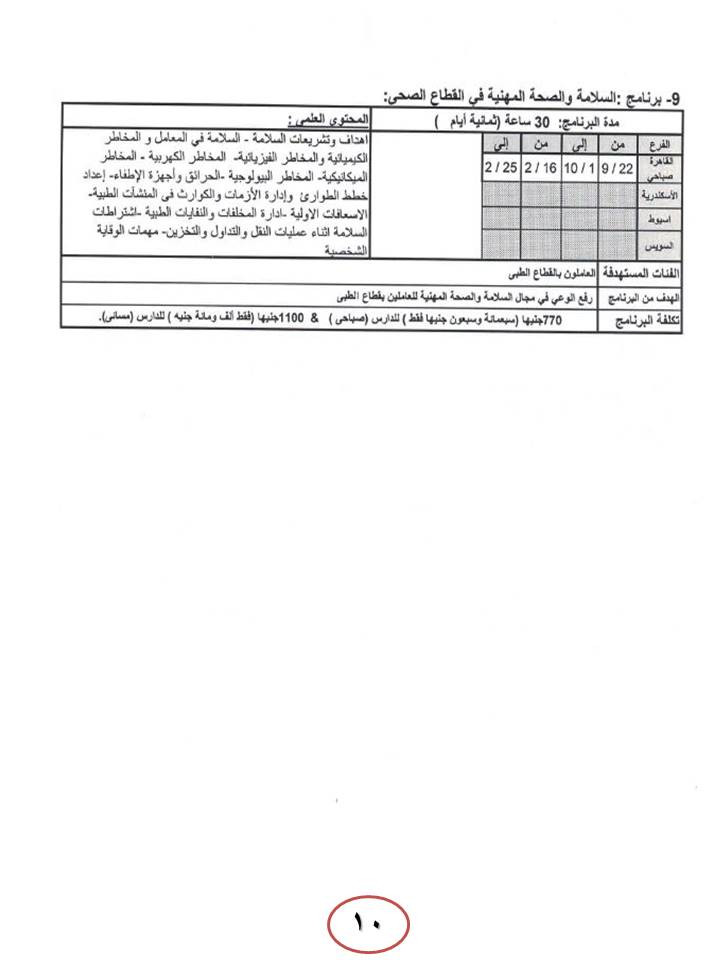 9- برنامج :السلامة والصحة المهنية في القطاع الصحي:
مدة البرنامج: 30 ساعة (ثمانية أيام )
المحتوي العلمى :
الفرع من إلي من إلي
القاهرة صباحي 22 / 9 1 / 10 16 / 2 25 / 2
الأسكندرية
اسيوط
السويس
اهداف وتشريعات السلامة - السلامة في المعامل و المخاطر
الكيميائية والمخاطر الفيزيائية- المخاطر الكهربية - المخاطر
الميكانيكية- المخاطر البيولوجية -الحرائق وأجهزة الإطفاء- إعداد
خطط الطوارئ وإدارة الأزمات والكوارث في المنشآت الطبية-
الاسعافات الاولية -ادارة المخلفات والنفايات الطبية -اشتراطات
السلامة اثناء عمليات النقل والتداول والتخزين- مهمات الوقاية
الشخصية
الفئات المستهدفة العاملون بالقطاع الطبى
الهدف من البرنامج رفع الوعي في مجال السلامة والصحة المهنية للعاملين بقطاع الطبى
تكلفة البرنامج 770جنيها (سبعمائة وسبعون جنيها فقط ) للدارس (صباحى ) & 1100جنيها (فقط ألف ومائة جنيه ) للدارس (مسائى).
١٠